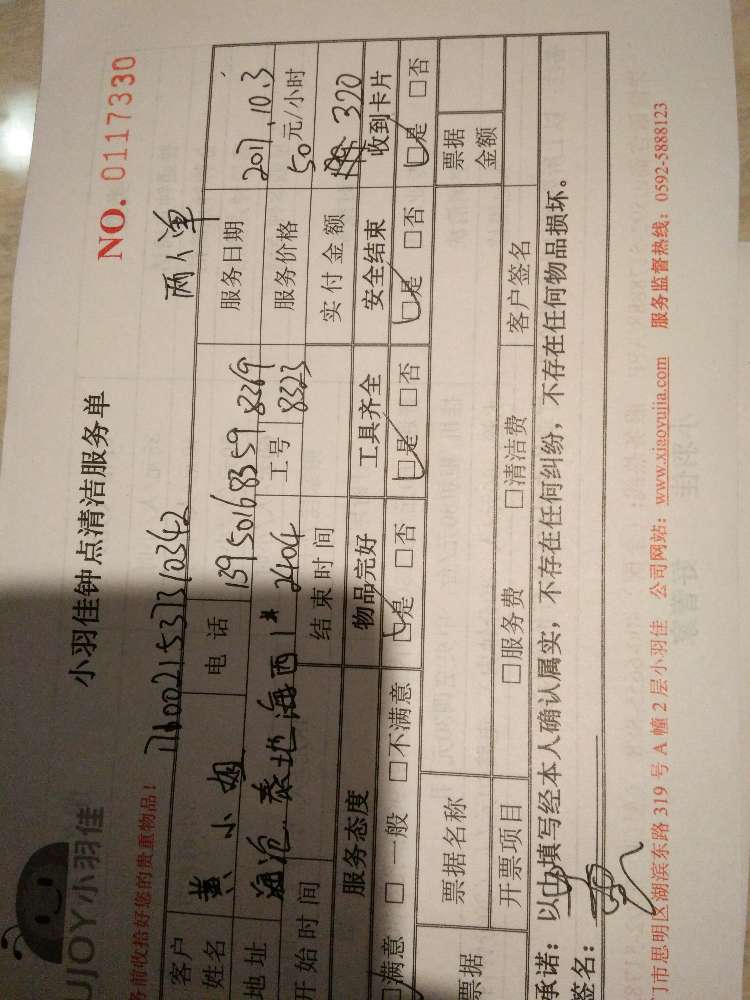 小羽佳钟点清洁服务单
NO. 0117330
UJOY小羽佳
务前收拾好您的贵重物品！
两人单
客户姓名 黄小姐 电话 13950168359 服务日期 2017.10.3
地址 泰地海西1# 2404 工号 8269 8323 服务价格 50元/小时
开始时间 结束时间 实付金额 320
服务态度 物品完好 工具齐全 安全结束 收到卡片
□满意 □一般 □不满意 □是 □否 □是 □否 □是 □否 □是 □否
票据 票据名称 票据金额
开票项目 □服务费 □清洁费 客户签名
承诺：以上填写经本人确认属实，不存在任何纠纷，不存在任何物品损坏。
签名：
门市思明区湖滨东路 319 号 A 幢 2 层小羽佳 公司网站：www.xiaoyujia.com 服务监督热线：0592-5888123